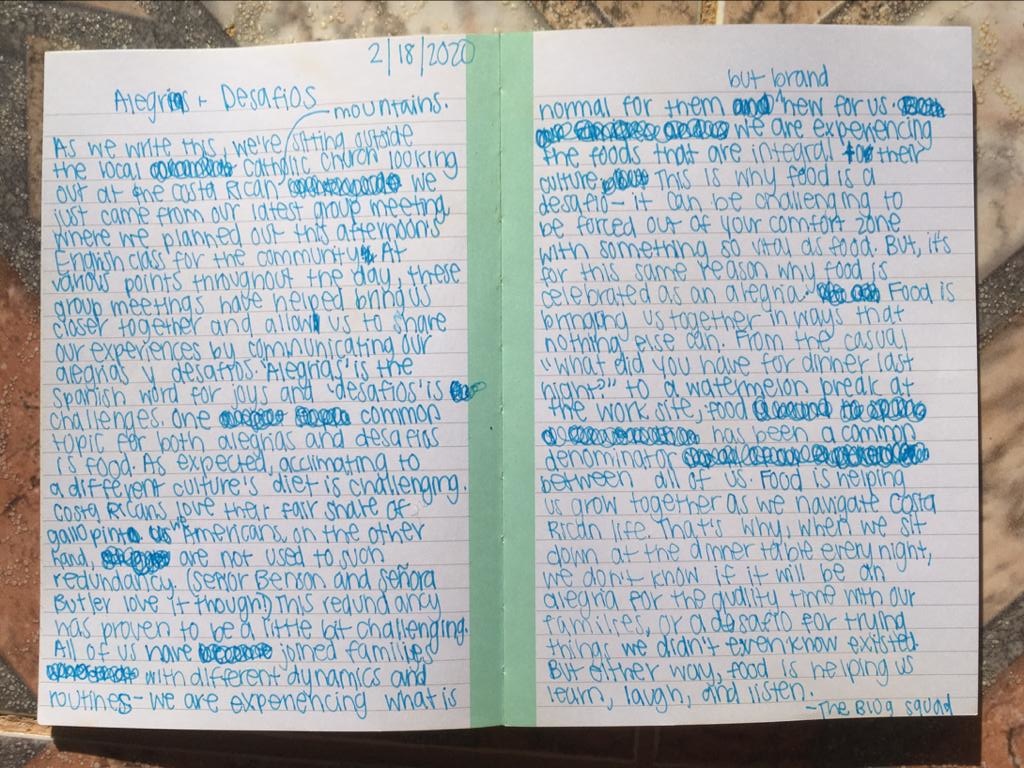 2/18/2020
Alegrias + Desafios
mountains.
As we write this, we're sitting outside
the local Catholic Church looking
out at the Costa Rican we
just came from our latest group meeting
where we planned out this afternoon's
English class for the community. At
various points throughout the day, these
group meetings have helped bring us
closer together and allow us to share
our experiences by communicating our
alegrias y desafios. 'Alegrias' is the
spanish word for joys and 'desafios' is
challenges. One common
topic for both alegrias and desafios
is food. As expected, acclimating to
a different culture's diet is challenging.
Costa Ricans love their fair share of
gallo pinto. We Americans, on the other
hand, are not used to such
redundancy. (Señor Benson and Señora
Butler love it though!) This redundancy
has proven to be a little bit challenging.
All of us have joined families
with different dynamics and
routines- we are experiencing what is
but brand
normal for them new for us.
we are experiencing
the foods that are integral to their
culture. This is why food is a
desafio- it can be challenging to
be forced out of your comfort zone
with something so vital as food. But, it's
for this same reason why food is
celebrated as an alegria. Food is
bringing us together in ways that
nothing else can. From the casual
"what did you have for dinner last
night?" to a watermelon break at
the work site, food
has been a common
denominator
between all of us. Food is helping
us grow together as we navigate Costa
Rican life. That's why, when we sit
down at the dinner table every night,
we don't know if it will be an
alegria for the quality time with our
families, or a desafio for trying
things we didn't even know existed.
But either way, food is helping us
learn, laugh, and listen.
-The Blog Squad